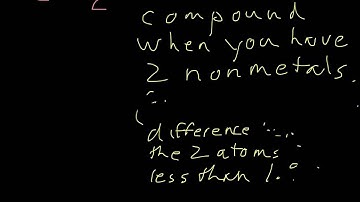 2
compound
when you have
2 nonmetals.
difference
the 2 atoms
less than 1.